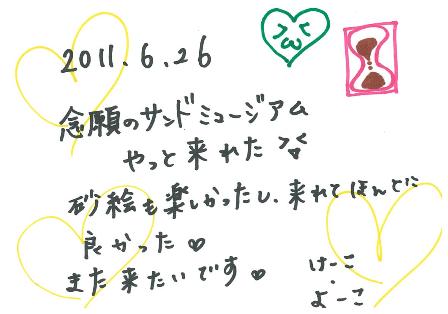 2011.6.26
念願のサンドミュージアム
やっと来れた
砂絵も楽しかったし、来れてほんとに
良かった♡
また来たいです♡
けーこ
よーこ